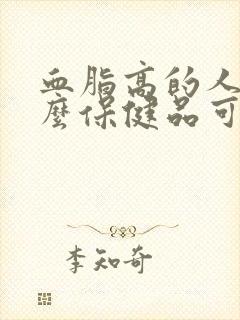 血脂高的人
麼保健品可
李知奇